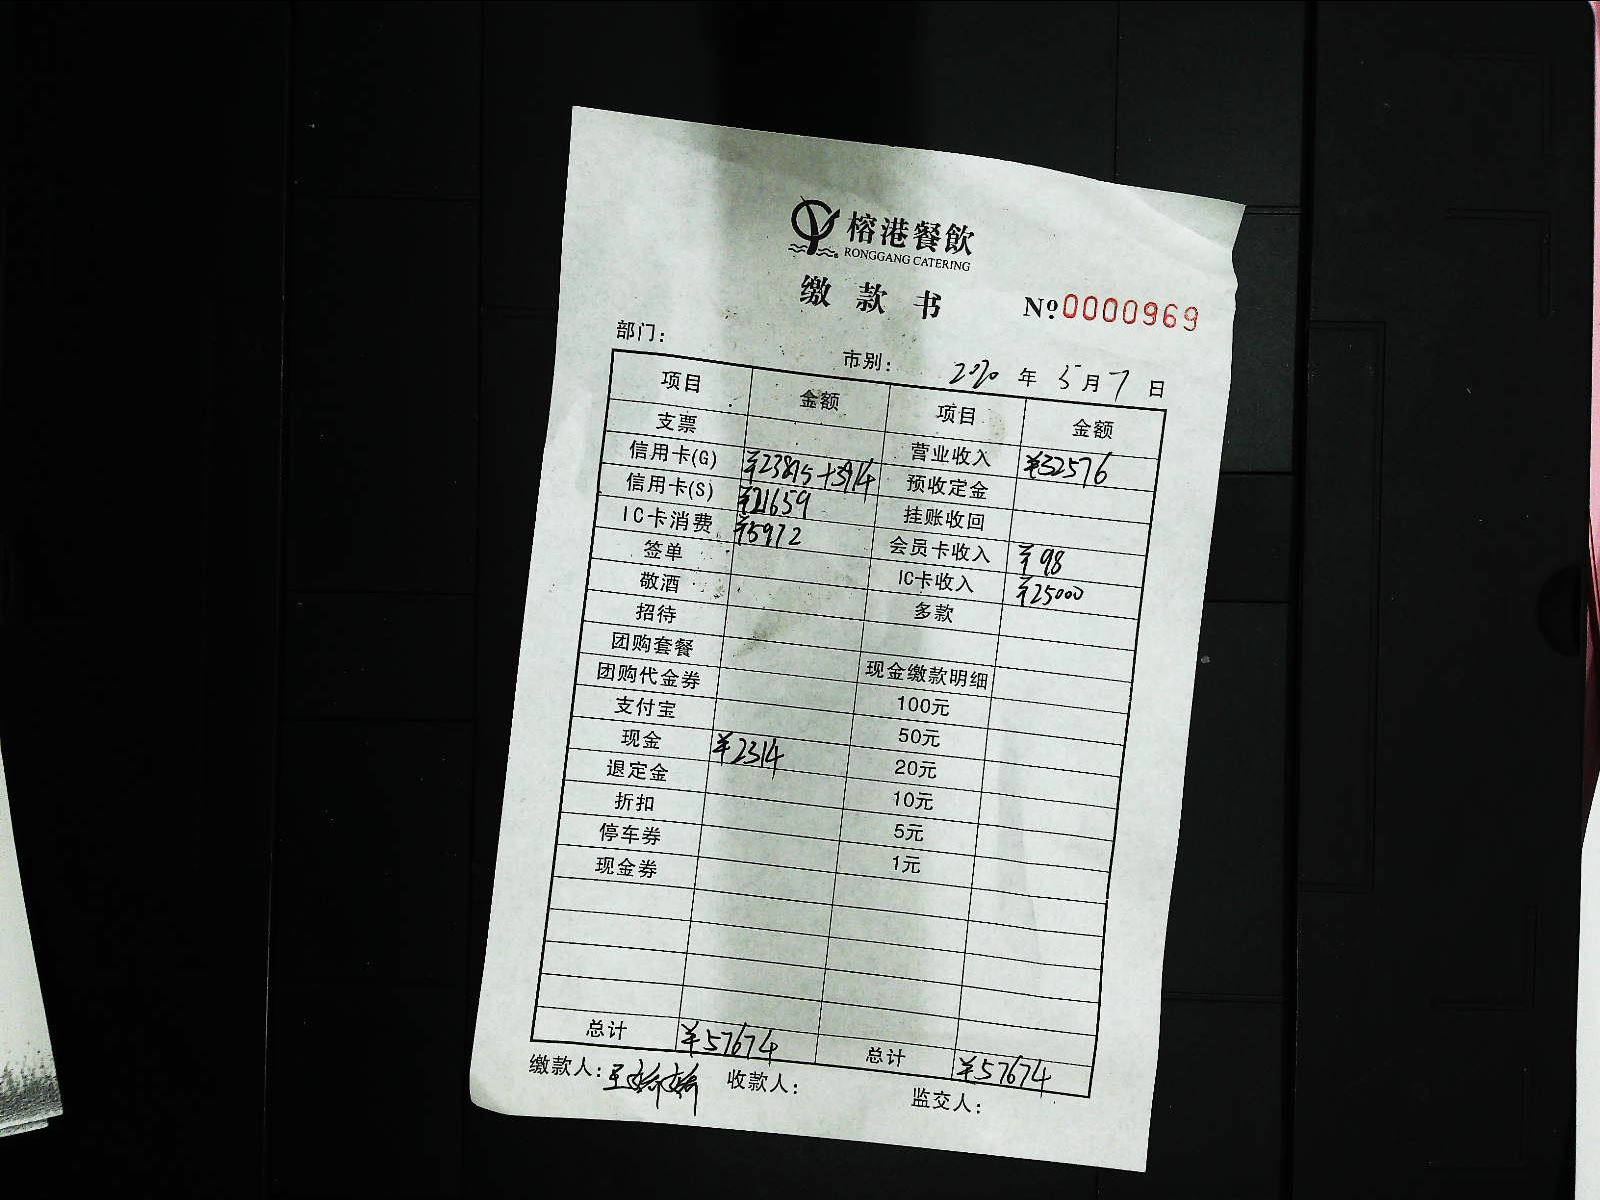 榕港餐飲
RONGGANG CATERING
缴款书 Nº 0000969
部门: 市别: 2020 年 5 月 7 日
项目 金额 项目 金额
支票 营业收入 ¥32576
信用卡(G) ¥23815+3914 预收定金
信用卡(S) ¥21659 挂账收回
IC卡消费 ¥5972 会员卡收入 ¥98
签单 IC卡收入 ¥25000
敬酒 多款
招待
团购套餐 现金缴款明细
团购代金券 100元
支付宝 50元
现金 ¥2314 20元
退定金 10元
折扣 5元
停车券 1元
现金券
总计 ¥57674 总计 ¥57674
缴款人: 收款人: 监交人: